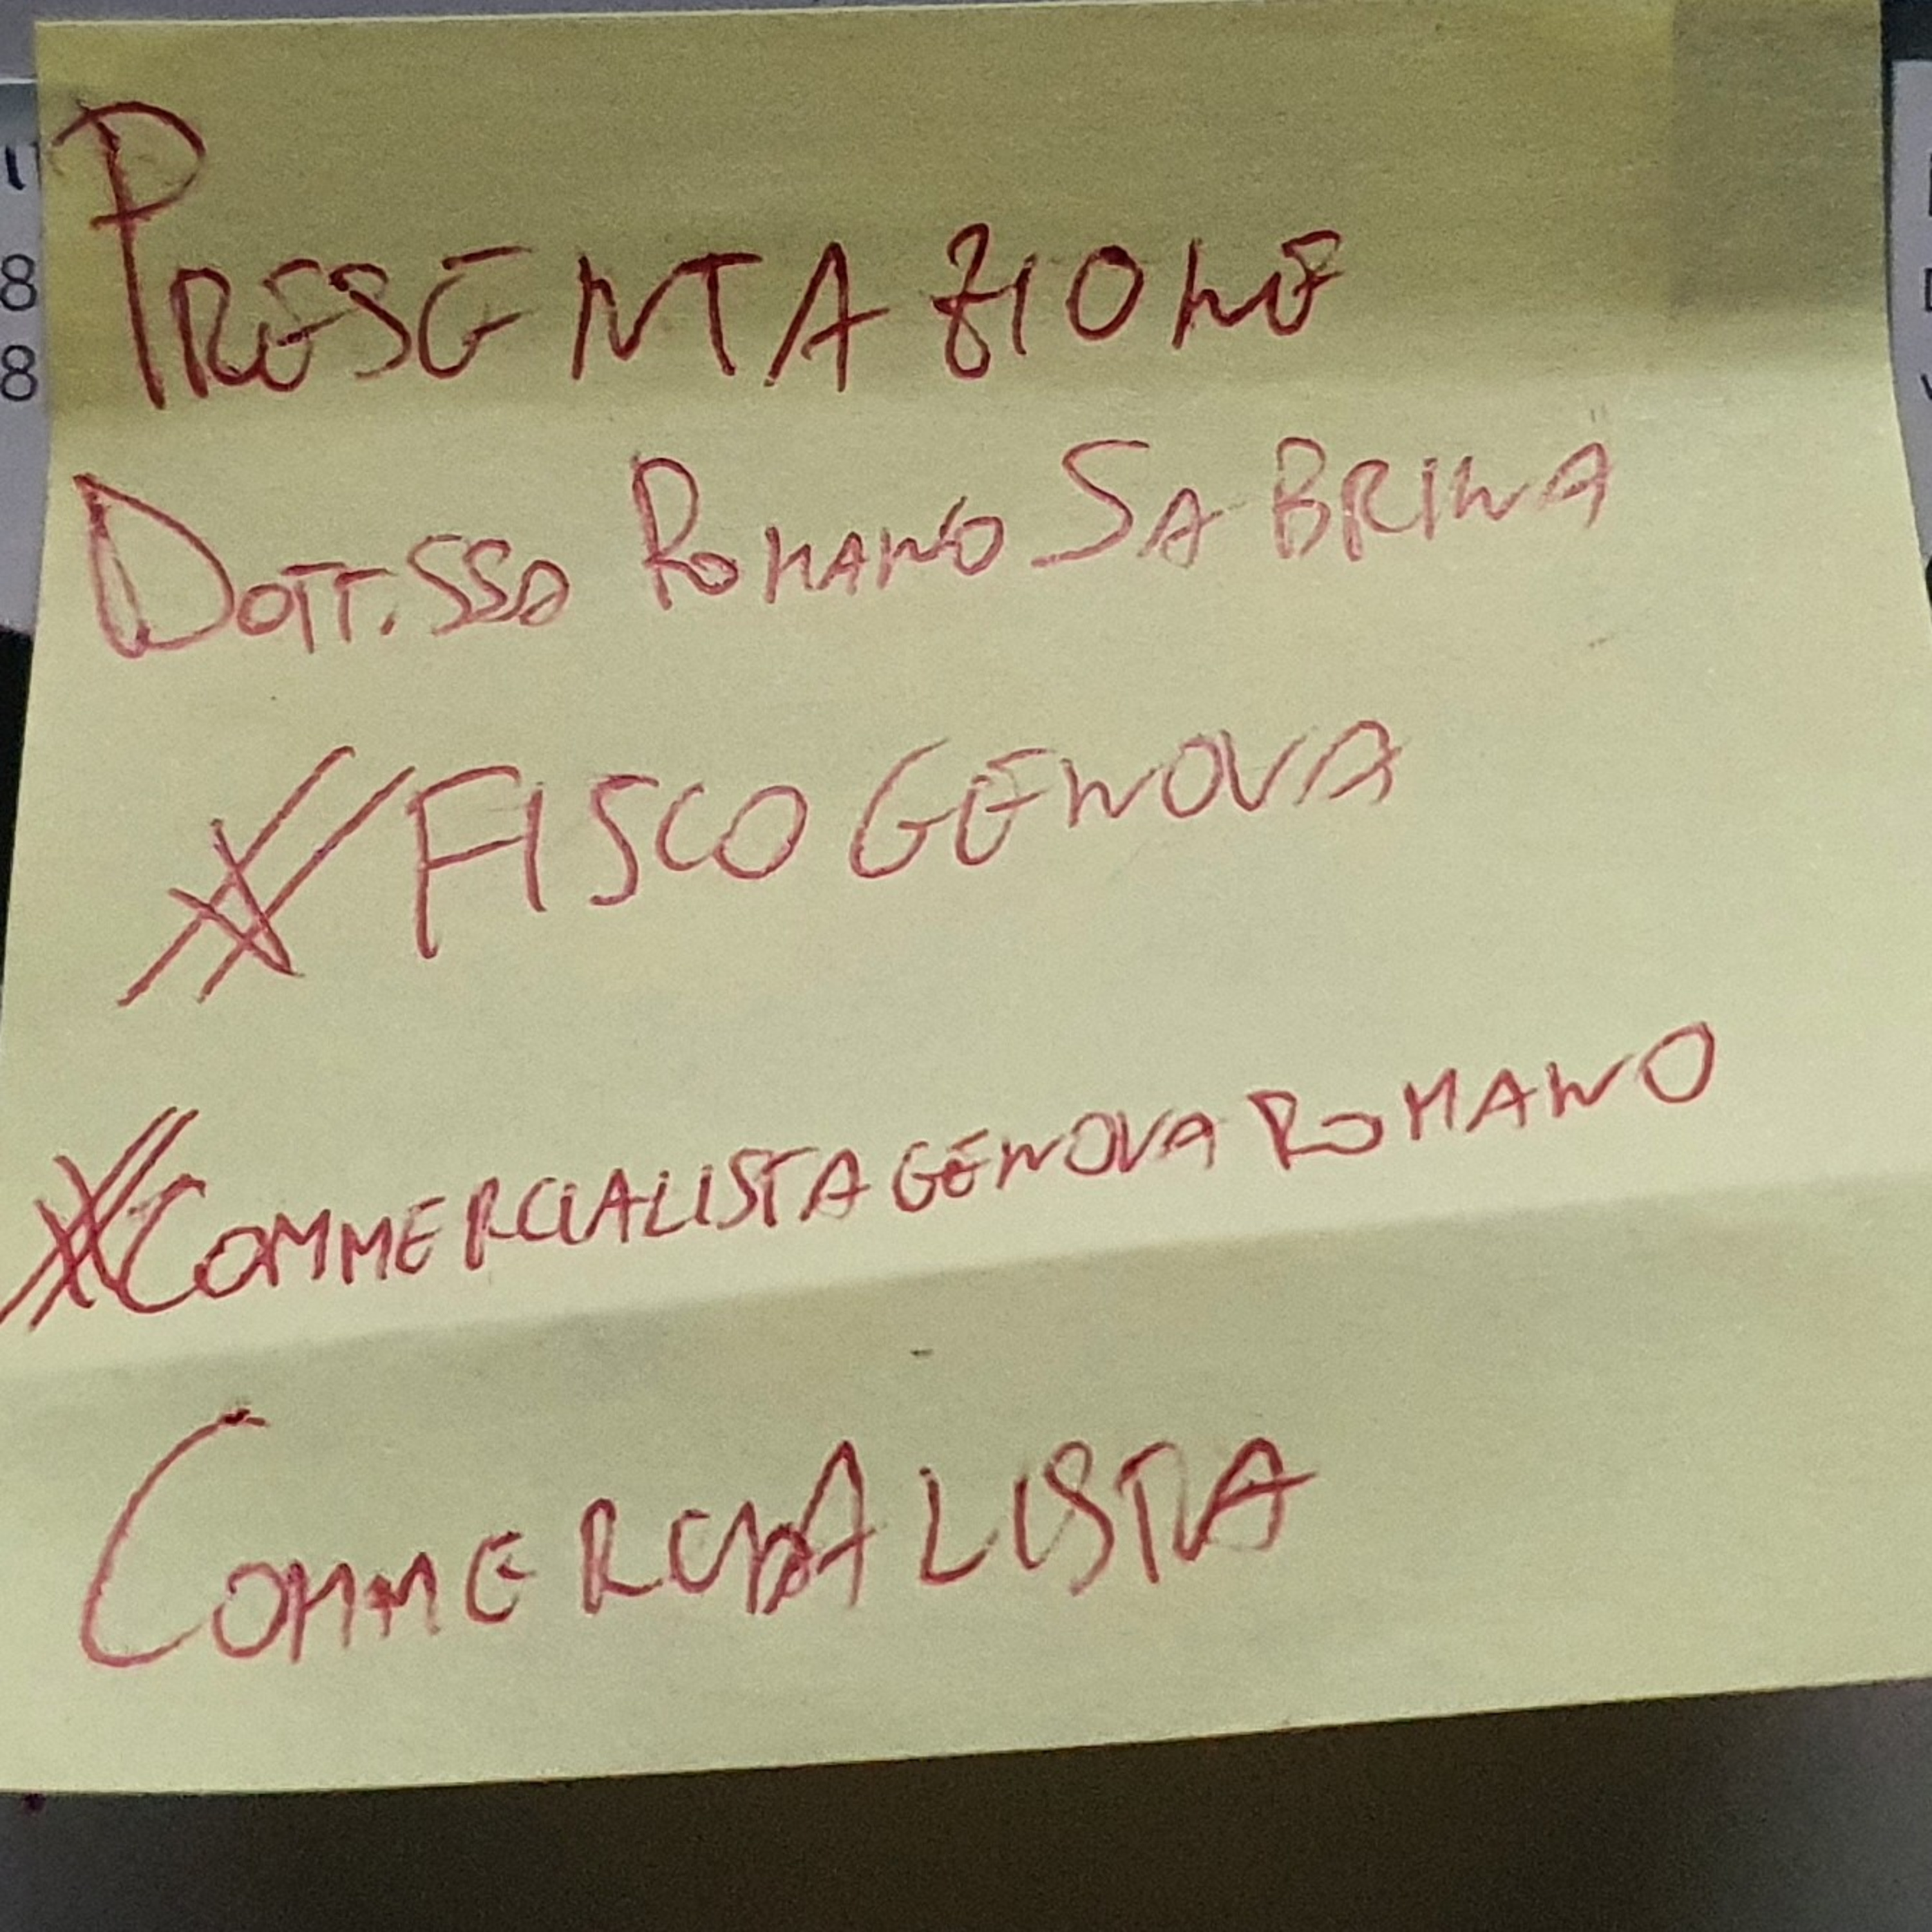 PRESENTAZIONE
DOTT.SSA ROMANO SABRINA
# FISCOGENOVA
# COMMERCIALISTAGENOVAROMANO
COMMERCIALISTA
8
8